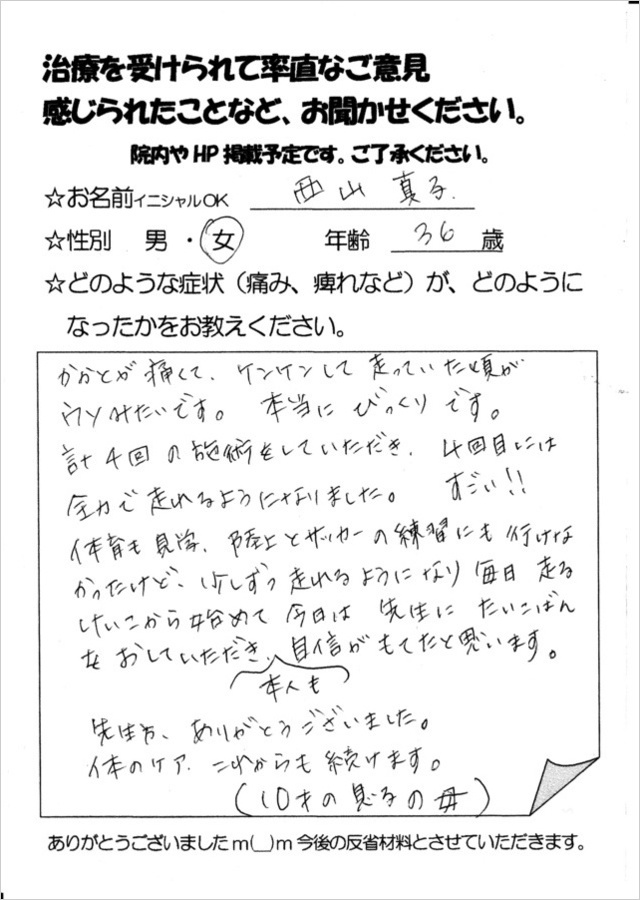 治療を受けられて率直なご意見
感じられたことなど、お聞かせください。
院内やHP掲載予定です。ご了承ください。
☆お名前イニシャルOK 西山 真子
☆性別 男・女 年齢 36 歳
☆どのような症状(痛み、痺れなど)が、どのように
なったかをお教えください。
かかとが痛くて、ケンケンして走っていた頃が
ウソみたいです。 本当にびっくりです。
計4回の施術をしていただき、4回目には
全力で走れるようになりました。 すごい!!
体育も見学、陸上とサッカーの練習にも行けな
かったけど、少しずつ走れるようになり毎日走る
けいこから始めて今日は先生にたいこばん
をおしていただき、自信がもてたと思います。
本人も
先生方、ありがとうございました。
体のケア、これからも続けます。
(10才の息子の母)
ありがとうございましたm(__)m今後の反省材料とさせていただきます。